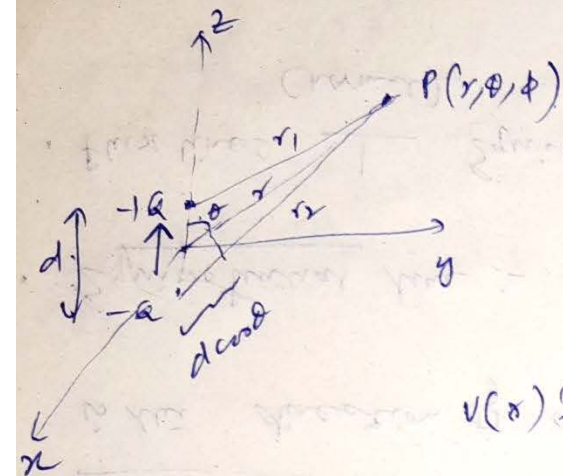 z
P(r,θ,φ)
r1
r
r2
-1Q
θ
d
y
-Q
d cosθ
x
V(r)